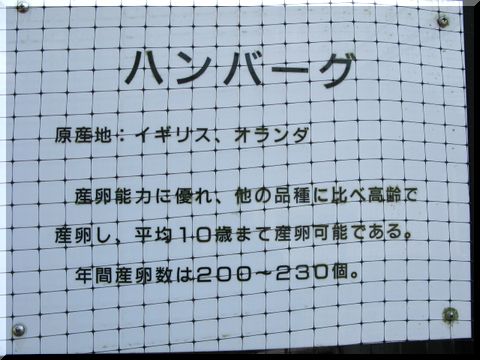 ハンバーグ
原産地：イギリス、オランダ
産卵能力に優れ、他の品種に比べ高齢で
産卵し、平均10歳まで産卵可能である。
年間産卵数は200～230個。